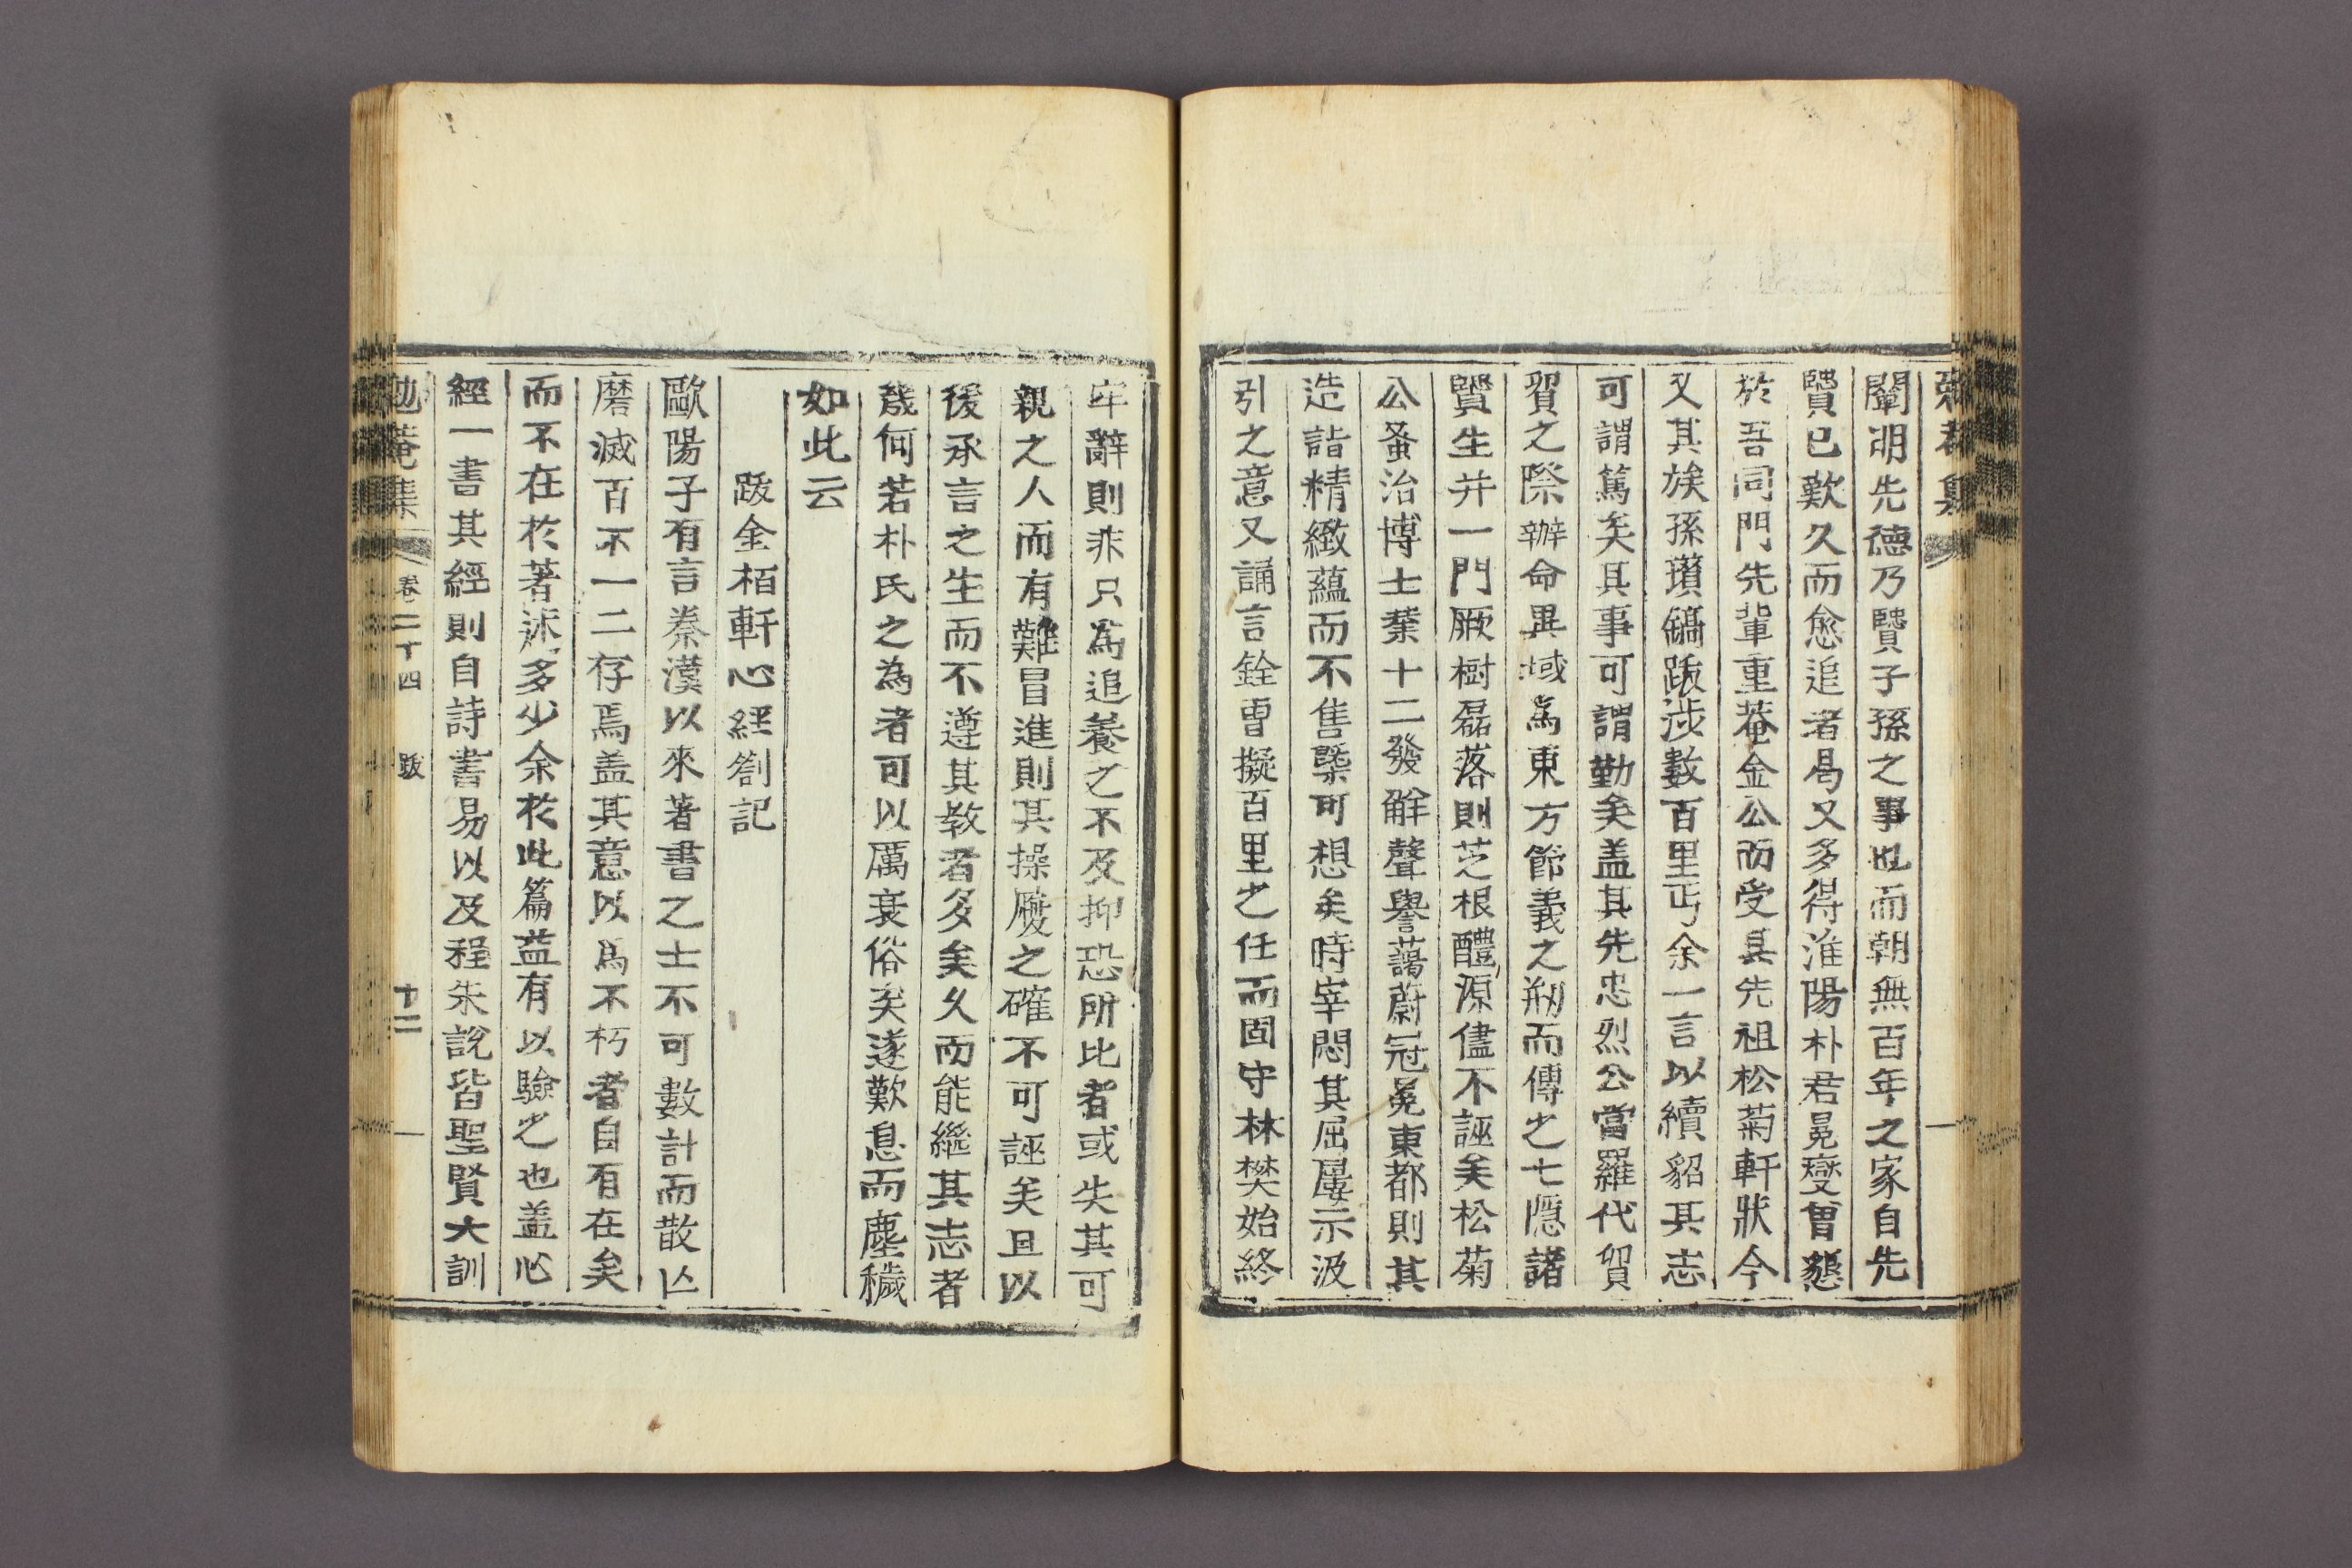 闡明先德乃賢子孫之事也而朝無百年之家自先
賢已歎久而愈追者曷又多得淮陽朴君晃燮曾懇
於吾同門先輩重菴金公而受其先祖松菊軒狀今
又其族孫瓚鎬跋涉數百里丐余一言以續貂其志
可謂篤矣其事可謂勤矣盖其先忠烈公當羅代貿
貿之際辦命異域爲東方節義之刱而傳之七隱諸
賢生并一門厥樹磊落則芝根醴源儘不誣矣松菊
公蚤治博士業十二發解聲譽藹蔚冠冕東都則其
造詣精緻蘊而不售槩可想矣時宰悶其屈屢示汲
引之意又誦言銓曺擬百里之任而固守林樊始終
牢辭則非只爲追養之不及抑恐所比者或失其可
親之人而有難冒進則其操履之確不可誣矣且以
後承言之生而不遵其教者多矣久而能繼其志者
幾何若朴氏之為者可以厲衰俗矣遂歎息而塵穢
如此云
跋金栢軒心經劄記
歐陽子有言秦漢以來著書之士不可數計而散亾
磨滅百不一二存焉盖其意以爲不朽者自有在矣
而不在於著述多少余於此篇益有以驗之也盖心
經一書其經則自詩書易以及程朱說皆聖賢大訓
勉菴集 卷二十四 跋 十二